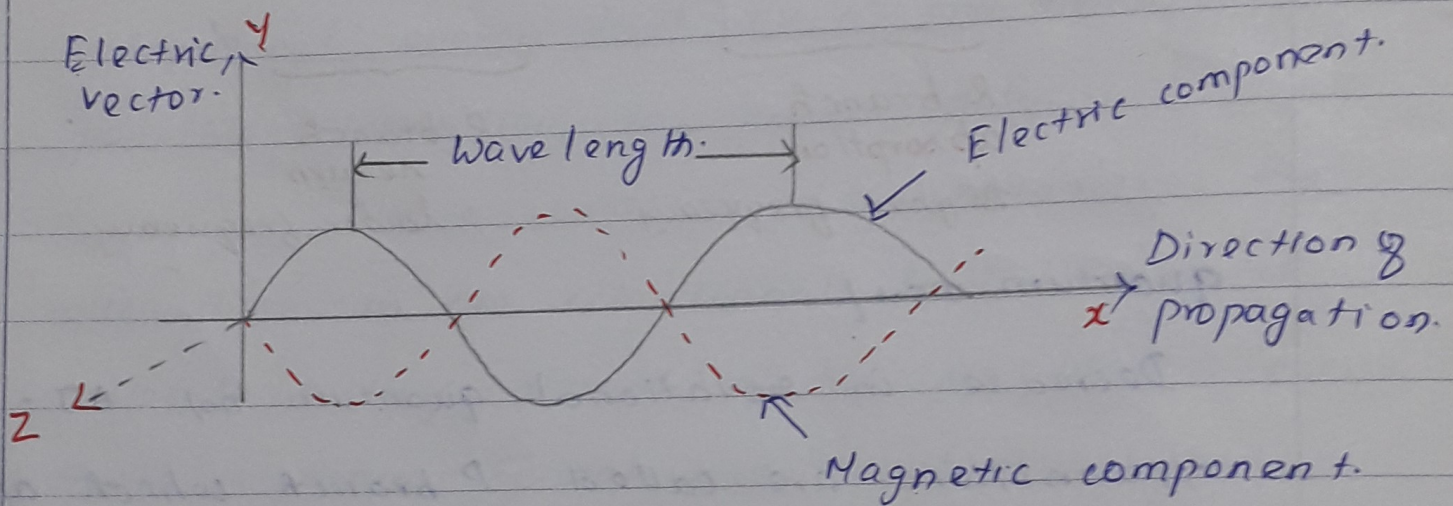 Y
Electric
vector.
Wavelength.
Electric component.
Direction of
x propagation.
Z
Magnetic component.